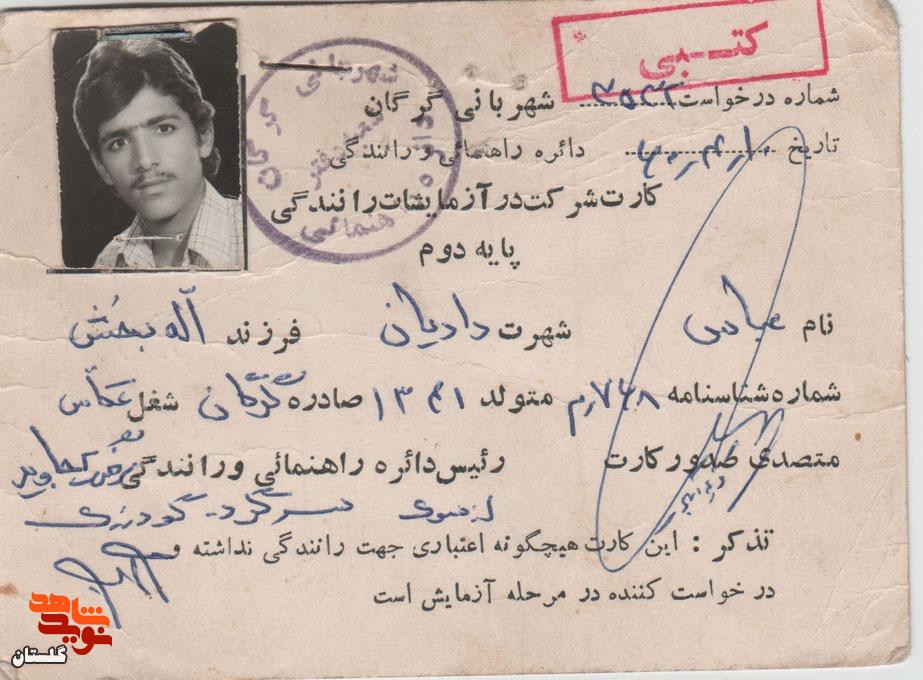 کتـــبی
شماره درخواست ۳۵۳۲ شهربانی گرگان
تاریخ ۶۰٫۴٫۱۰ دائره راهنمائی و رانندگی
کارت شرکت در آزمایشات رانندگی
پایه دوم
نام عباس شهرت دادیان فرزند اله بخش
شماره شناسنامه ۷۶۸م متولد ۱۳۴۱ صادره گرگان شغل عکاس
متصدی صدور کارت رئیس دائره راهنمائی و رانندگی
از سوی سرگرد گودرزی
تذکر : این کارت هیچگونه اعتباری جهت رانندگی نداشته و
درخواست کننده در مرحله آزمایش است
نوید شاهد
گلستان